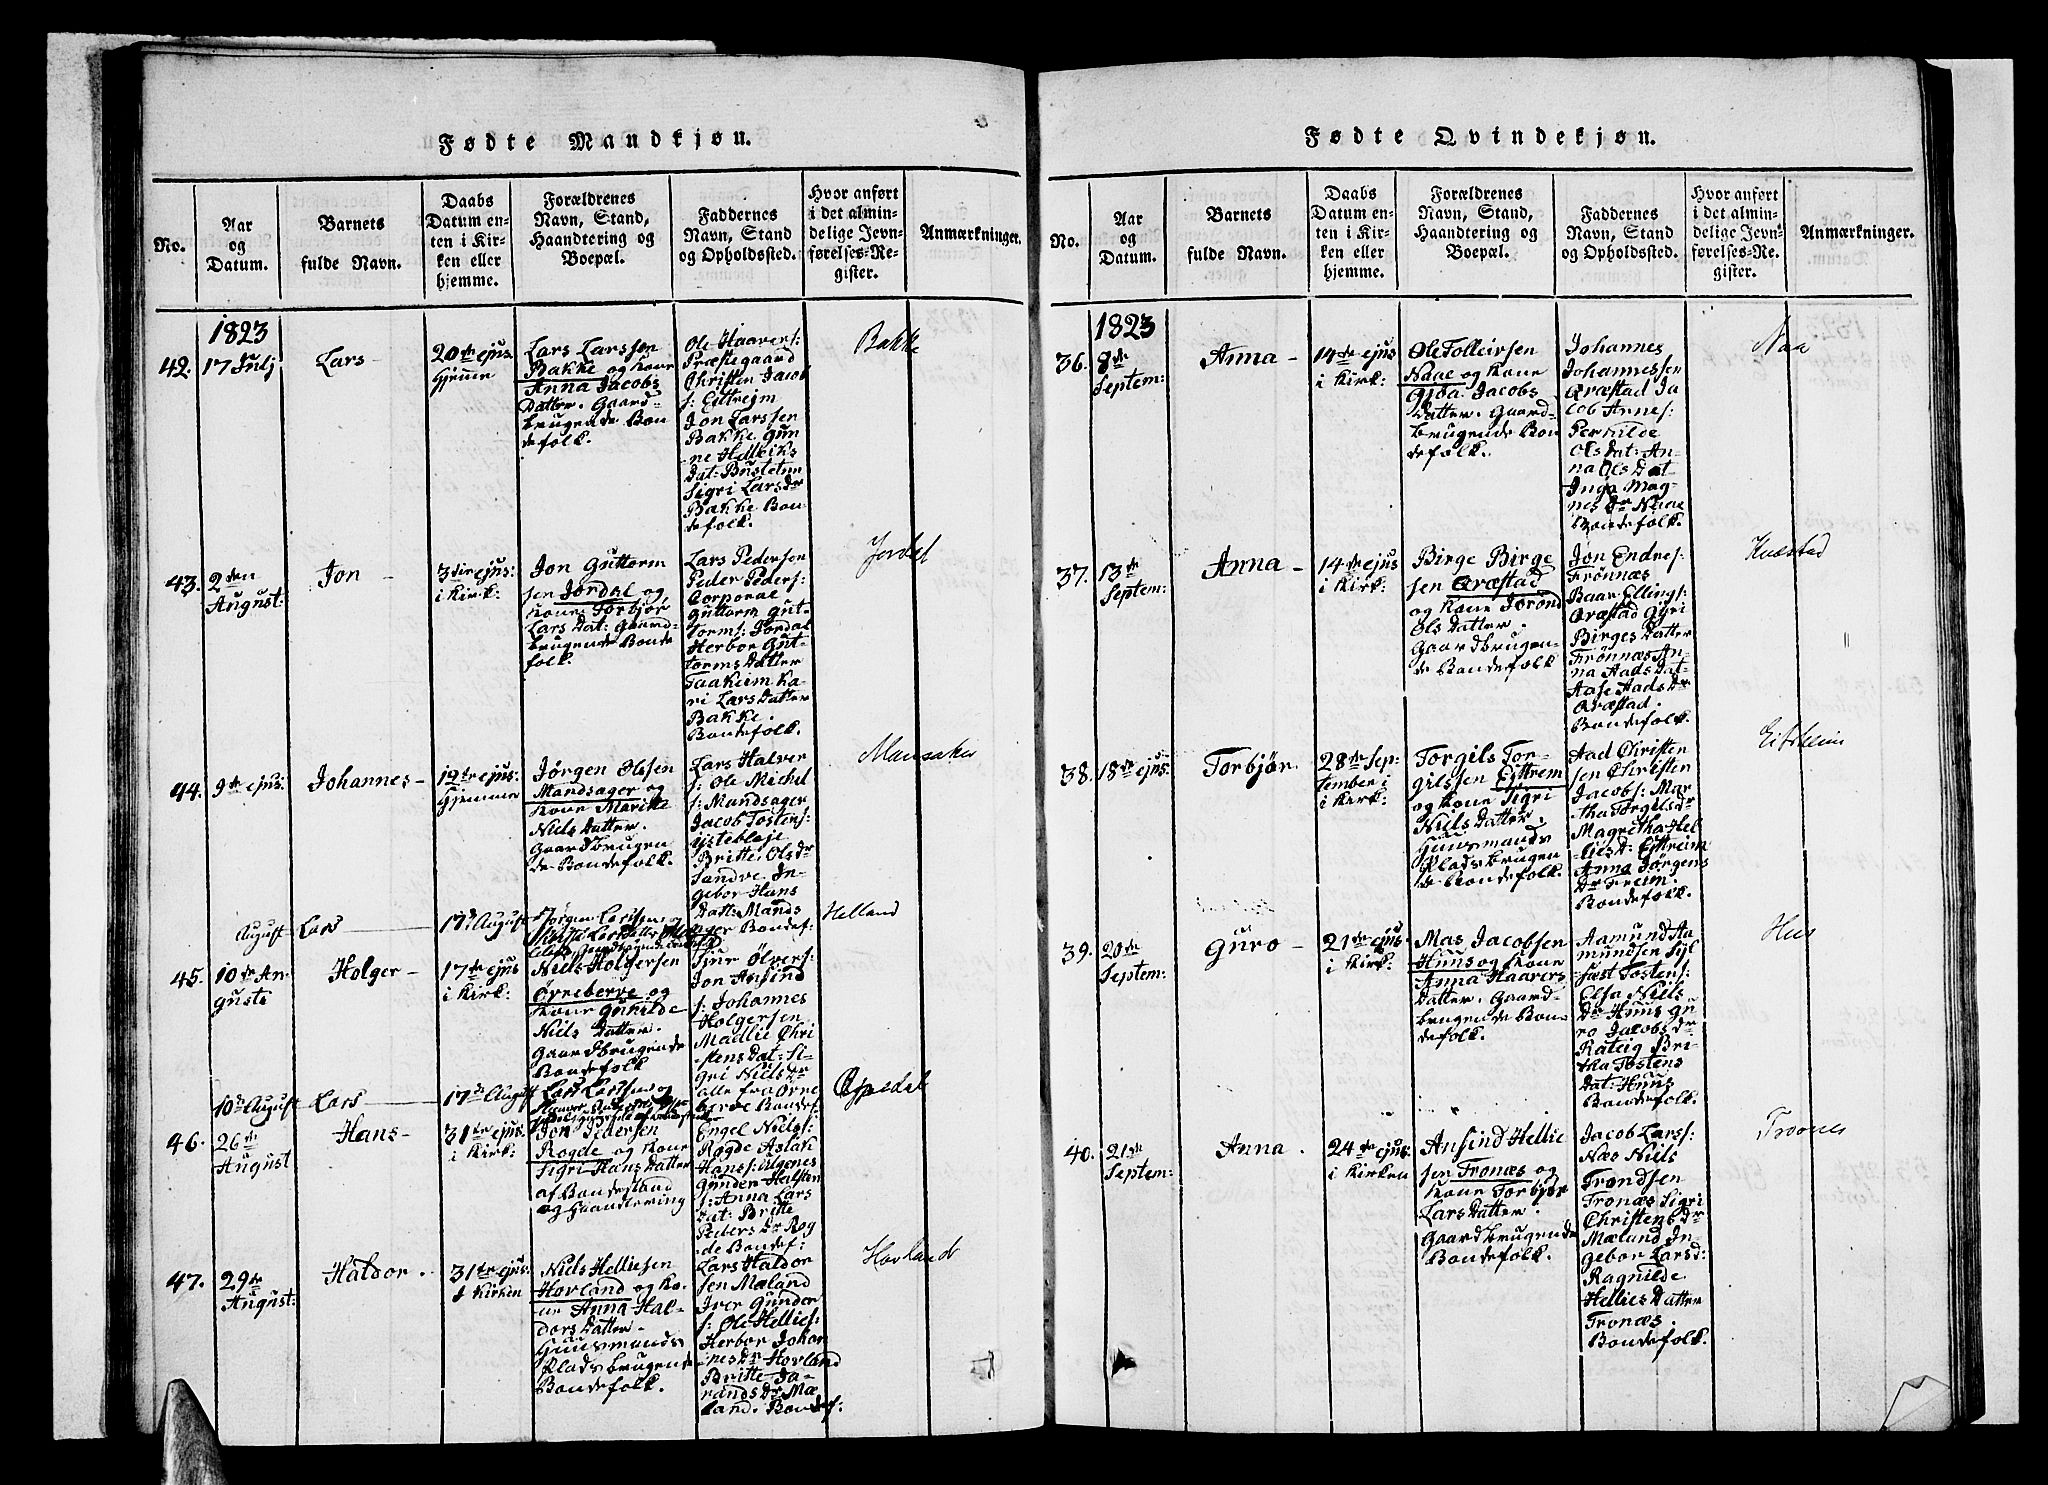 Fødte Mandkjøn.
No.
Aar
og
Datum.
Barnets
fulde Navn.
Daabs
Datum en-
ten i Kir-
ken eller
hjemme.
Forældrenes
Navn, Stand,
Haandtering og
Boepæl.
Faddernes
Navn, Stand
og Opholdssted.
Hvor anført
i det almin-
delige Jevn-
førelses-Re-
gister.
Anmærkninger.
1823
42.
17 Julj
Lars
20de ejus.
Hjemme
Lars Larssen
Bakke og Kone
Anna Jacobs
Datter. Gaard-
brugende Bon
defolk.
Ole Haavers:
Præstegaard
Christen Jacob
s: Eittreim
Jon Larssen
Bakke Gun
ne Helleiks
Dat: Bustetun
Sigri Larsdr
Bakke Bon-
defolk.
Bakke
43.
2den
August:
Jon
3die ejus:
i Kirk:
Jon Guttorm
sen Jordal og
Kone Torbjør
Lars Dat: Gaard-
brugende Bonde
folk.
Lars Pedersen
Peder Peders:
Corporal
Guttorm Gut-
torms: Jordal
Herbor Gut-
torms Datter
Taakeim Ka-
ri Lars Datter
Bakke.
Bondefolk.
Jordal
44.
9de ejus.
Johannes
12te ejus:
Hjemme
Jørgen Olssen
Mandsager og
Kone Maritte
Niels Datter.
Gaardbrugen
de Bondefolk.
Lars Halver
s: Ole Michel
s: Mandsager
Jacob Tostens:
Ystebløje
Britte Ols dr
Sandve In-
gebor Hans
Datt: Mands
ager Bondef:
Mansaker
August
Lars
17de August
Jørgen Larssen og
Helland
45.
10de Au-
guste
Holger
17de ejus
i Kirk:
Niels Holgersen
Ørneberve og
Kone Gunilde
Niels Datter.
Gaardbrugende
Bondefolk
Siur Ølvers:
Jon Ansind
s: Johannes
Holgersen
Madlie Chri
stens Dat: Si-
gri Niels Dr
alle fra Ørne
berve Bondef:
10de August
Lars
17de August
Lars Larssen og
Opedal
46.
26de
August
Hans
31te ejus
i Kirk:
Jon Pedersen
Rogde og Kone
Sigri Hans Datter
af Bondestand
og Haandtering
Engel Niels:
Rogde Aslak
Hans: Algenes
Gunder Halstan
s: Anna Lars
Dat: Britte
Peders Dr Rog
de Bondef:
47.
29de
August:
Haldor
31te ejus:
i Kirken
Niels Helliesen
Hovland og Ko-
ne Anna Hal-
dors Datter
Huusmands
Plads brugende
Bondefolk.
Lars Haldor
sen Mæland
Iver Gunder
s: Ole Hellies:
Herbor Johan
nes Dr Hovland
Britte Ja-
rands Dr Mæ
land. Bondef:
Hovland
Fødte Qvindekjøn.
No.
Aar
og
Datum.
Barnets
fulde Navn.
Daabs
Datum en-
ten i Kir-
ken eller
hjemme.
Forældrenes
Navn, Stand,
Haandtering og
Boepæl.
Faddernes
Navn, Stand
og Opholdssted.
Hvor anført
i det almin-
delige Jevn-
førelses-Re-
gister.
Anmærkninger.
1823
36.
8de
Septem:
Anna
14de ejus
i Kirk:
Ole Tolleivsen
Naae og Kone
Gjøa Jacobs
Datter. Gaard-
brugende Bon
defolk.
Johannes
Johannessen
Qræstad Ja
cob Arnes:
Pernilde
Ols dat: An-
na Ols Dat
Inga Mag-
nes Dr Naae
Bondefolk.
Naa
37.
13de
Septem:
Anna
14de ejus
i Kirk:
Birge Birge
sen Qræstad
og Kone Jorønd
Ols Datter.
Gaardbrugen-
de Bondefolk
Jon Endres:
Frønnæs
Baar Ellings:
Qræstad Gyri
Birges Datter
Frønnæs An-
na Aads Dat-
Aase Aads Dr
Qræstad.
Bondefolk.
Kvæstad
38.
18de ejus.
Torbjør.
28de Sep-
tember i
i Kirk:
Torgils Tor-
gilssen Eyttrem
og Kone Sigri
Niels Datter.
Huusmands
Plads brugen
de Bondefolk.
Aad Christen
sen Christen
Jacobs: Mar-
tha Torgils dr
Magretha Hel
lies D: Eyttreim
Anna Jørgens
Dr Freim.
Bondefolk.
Eitrheim
39.
20de
Septem:
Guro
21de ejus:
i Kirk:
Mas Jacobsen
Huus og Kone
Anna Haavers
Datter. Gaard-
brugende Bon
defolk.
Aamund Aa
mundsen Syl
fæst Tostens:
Elsa Niels
Dr Huus Gu
ro Jacobs Dr
Rateig Bri-
tha Tostens
Dat: Huus
Bondefolk.
Hus
40.
21de
Septem:
Anna
24de ejus:
i Kirken
Ansind Hellie
sen Tronæs og
Kone Torbjør
Lars Datter.
Gaardbrugende
Bondefolk.
Jacob Larss:
Næs Niels
Trondsen
Tronæs Sigri
Christens dr
Mæland In-
gebor Larsd:
Ragnilde
Hellies Datter
Tronæs.
Bondefolk.
Tronæs